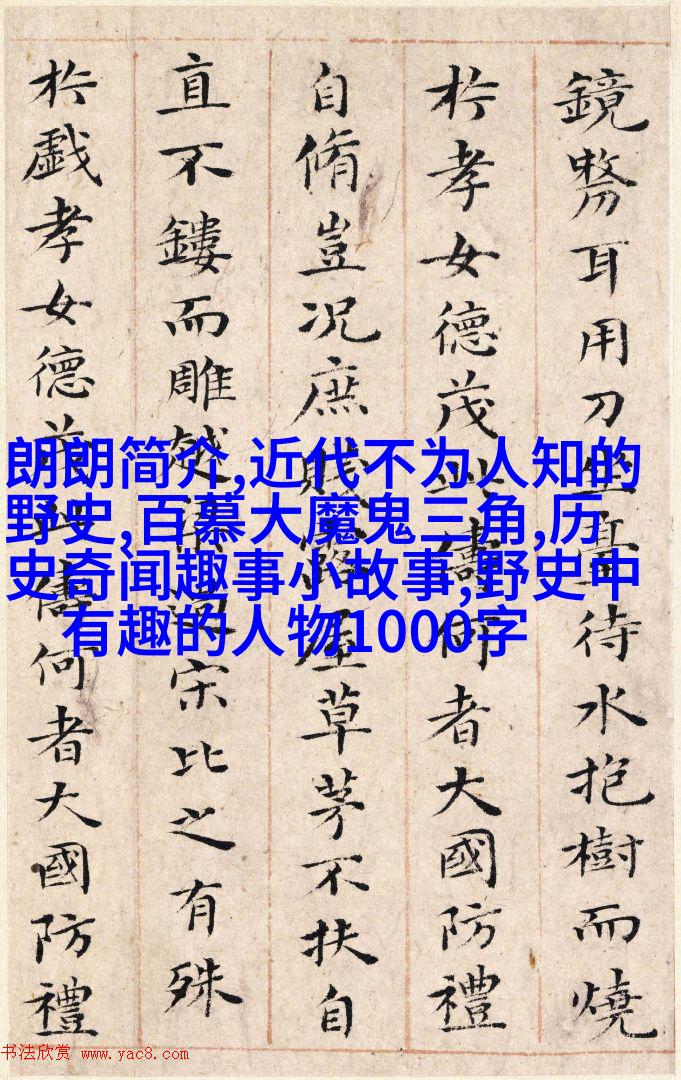 鏡剺耳用刀坐臺待水抱樹而燒
扵孝女德茂此儔何者大國防禮
自脩豈况庶賤露屋草茅不扶自
直不鏤而雕越梁過宋比之有殊
扵戲孝女德茂此儔何者大國防禮
朗朗简介,近代不为人知的
野史,百慕大魔鬼三角,历
史奇闻趣事小故事,野史中
有趣的人物1000字
书法欣赏 www.yac8.com